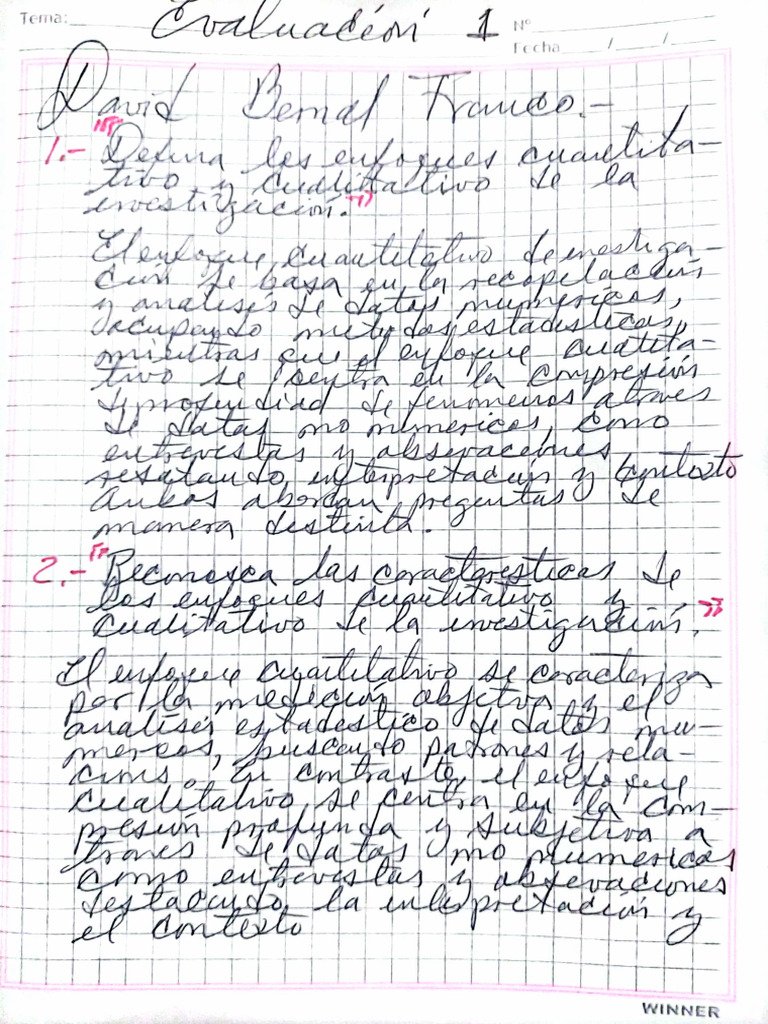 Tema: Evaluación 1 Nº
Fecha / /
David Bernal Franco.-
1.- "Defina los enfoques cuantita-
tivo y cualitativo de la
investigación."
El enfoque cuantitativo de investiga-
ción se basa en la recopilación
y analisis de datos numericos,
ocupando metodos estadisticos,
mientras que el enfoque cuatita-
tivo se centra en la compresión
de profundidad de fenomenos atraves
de datos no numericos, como
entrevistas y observaciones
resaltando interpretación y contexto
Ambos abordan preguntas de
manera distinta.
2.- "Reconozca las caracteristicas de
los enfoques cuantitativo y
cualitativo de la investigación."
El enfoque cuantitativo se caracteriza
por la medición objetiva y el
analisis estadestico de datos nu-
mericos, buscando patrones y rela-
cions. En contraste, el enfoque
cualitativo se centra en la com-
presión profunda y subjetiva a
traves de datos no numericos
como entrevistas y obsevaciones
destacando la interpretación y
el contexto
WINNER